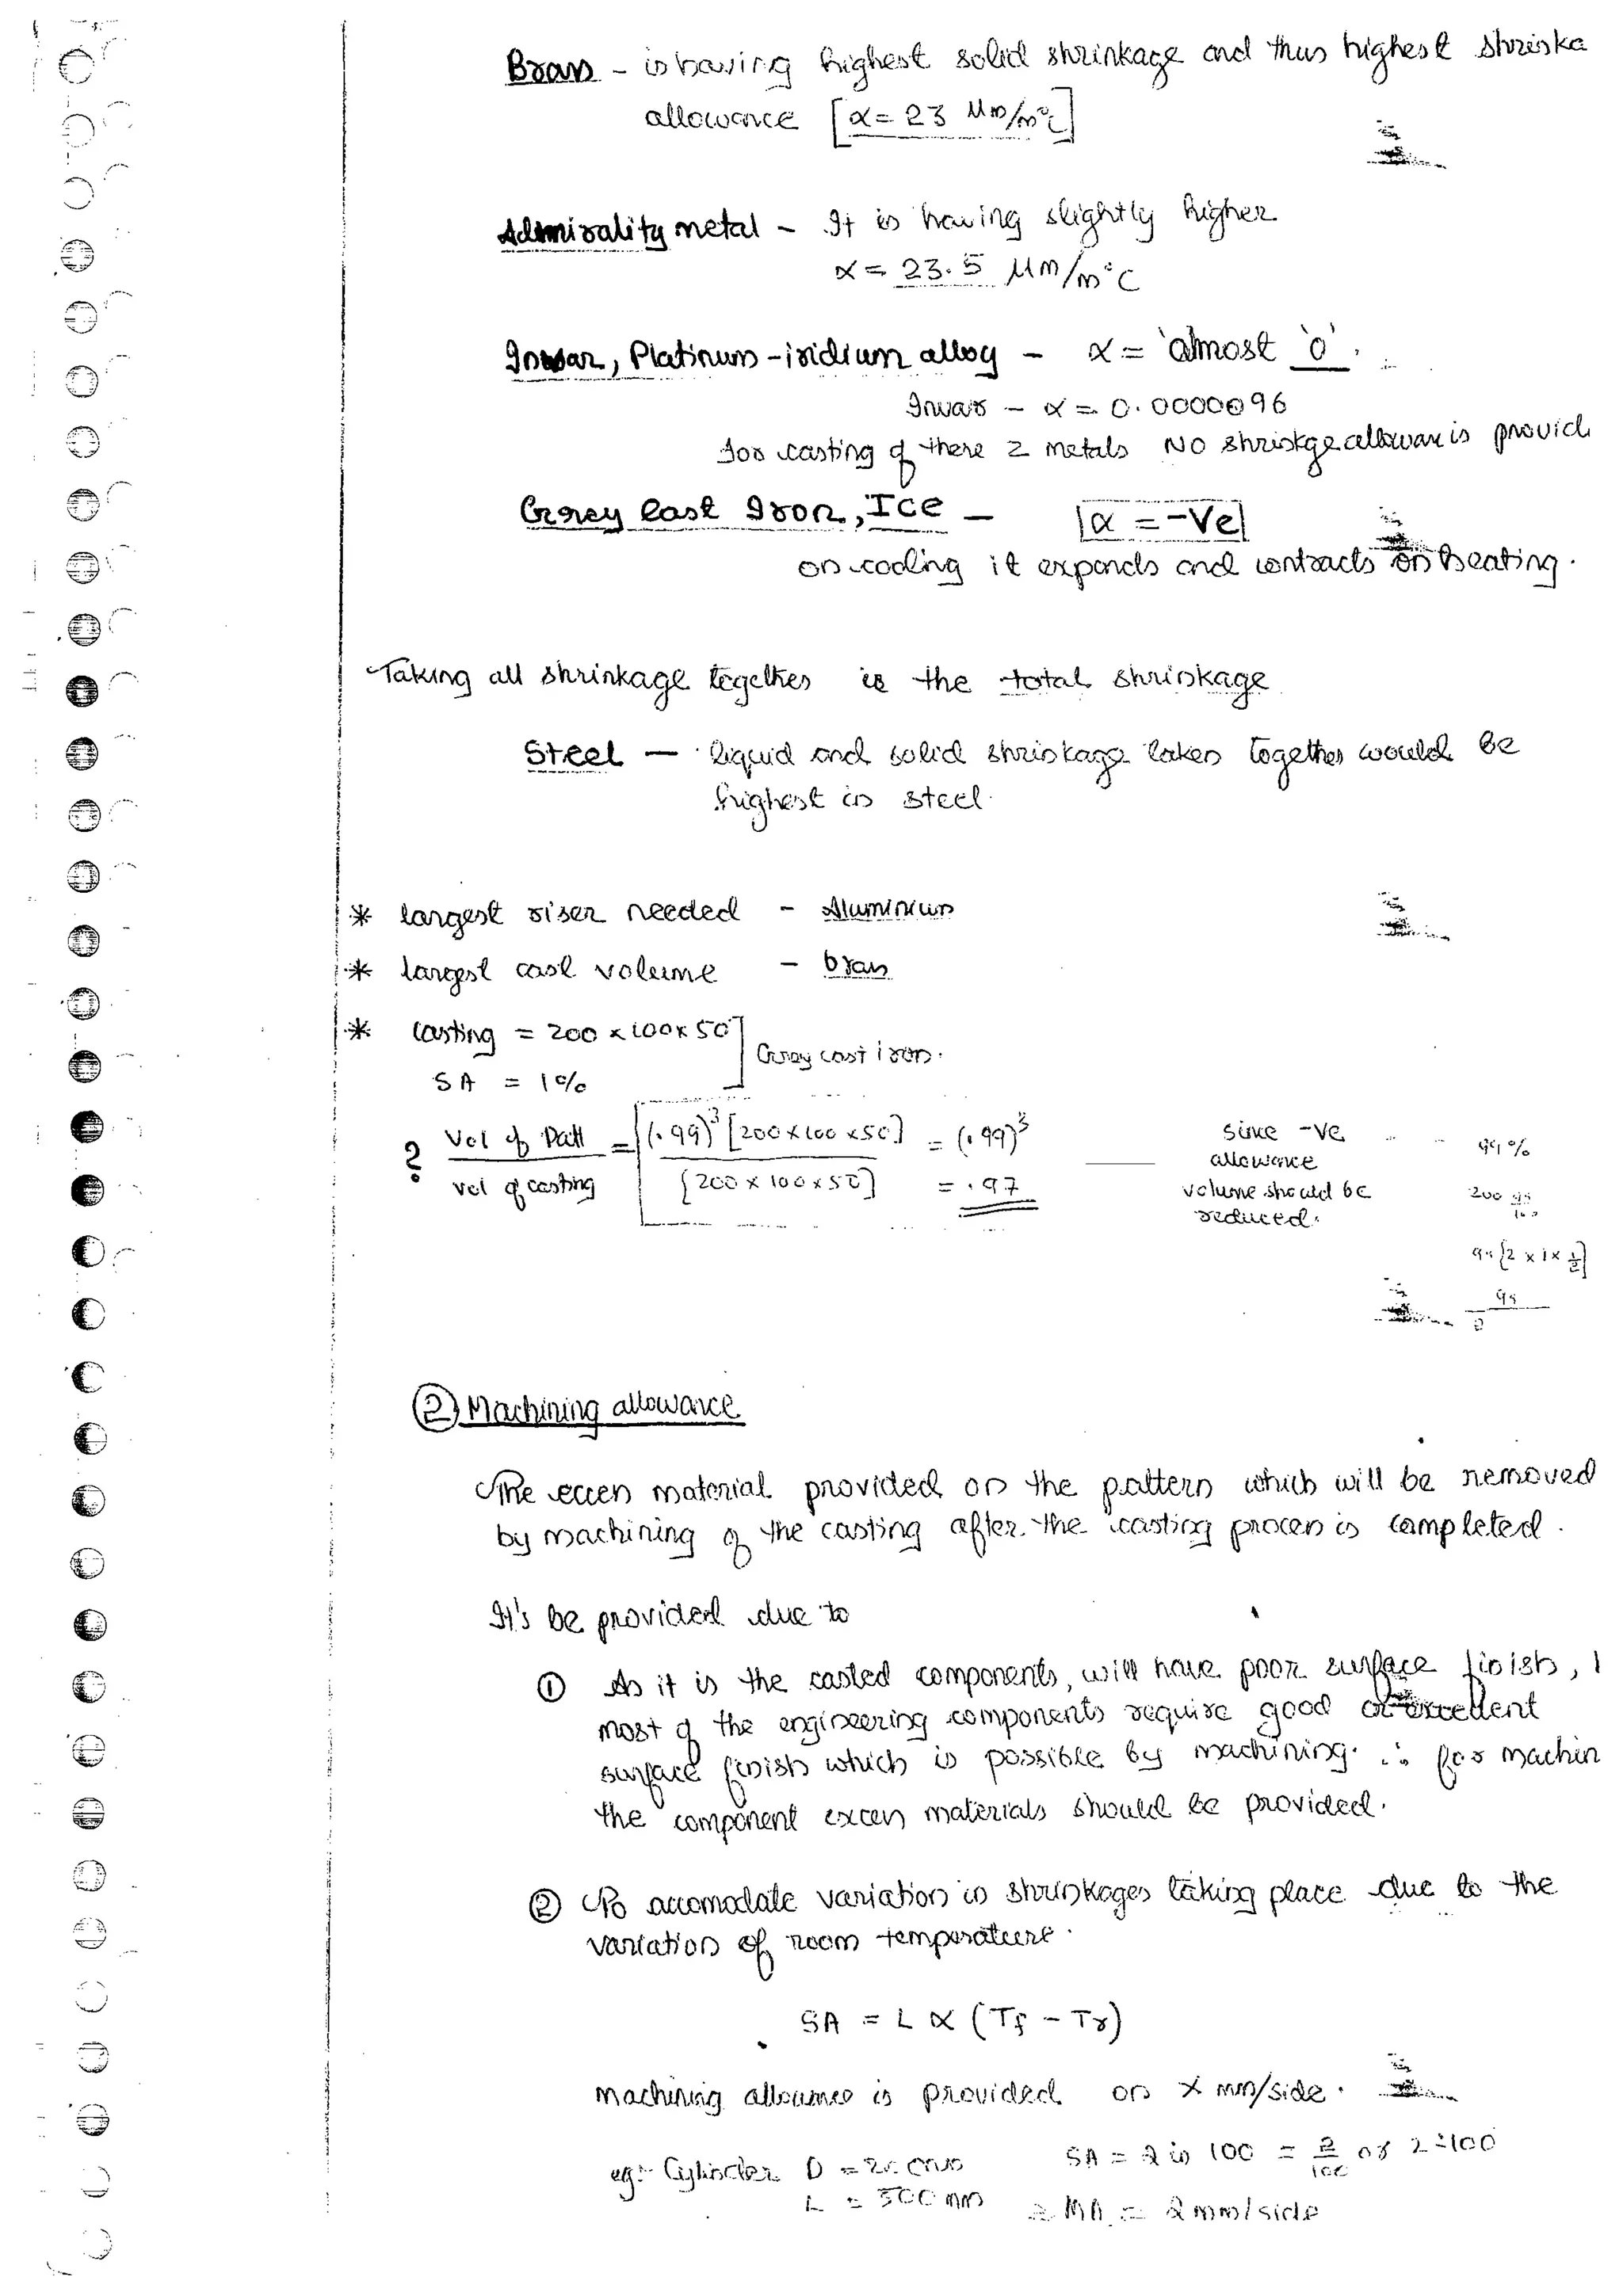 Brass - is having highest solid shrinkage and thus highest shrinka
allowance [α = 23 μm/m°C]
Admirality metal - It is having slightly higher
α = 23.5 μm/m°C
Invar, Platinum-iridium alloy - α = almost '0'.
Invar - α = 0.0000096
for casting of these 2 metals NO shrinkge allowan is provid
Grey Cast Iron, Ice - α = -Ve
on cooling it expands and contracts on heating.
Taking all shrinkage together is the total shrinkage
Steel - liquid and solid shrinkage taken together would be
highest in steel.
* largest riser needed - Aluminium
* largest cast volume - brass
* casting = 200 x 100 x 50] Grey cast iron.
SA = 1%
? Vol of Patt / vol of casting = (.99)³ [200 x 100 x 50] / [200 x 100 x 50] = (.99)³
= .97
since -ve
allowance
volume should be
reduced.
99%
② Machining allowance
The excess material provided on the pattern which will be removed
by machining of the casting after the casting process is completed.
It's be provided due to
① As it is the casted components, will have poor surface finish,
most of the engineering components require good or excellent
surface finish which is possible by machining. ∴ for machin
the component excess materials should be provided.
② To accomodate variation in shrinkages taking place due to the
variation of room temperature.
SA = L α (Tf - Tr)
Machining allowance is provided on X mm/side.
eg:- Cylinder D = 200mm SA = 2 in 100 = 2/100 or 2:100
L = 300 mm MA = 2 mm/side